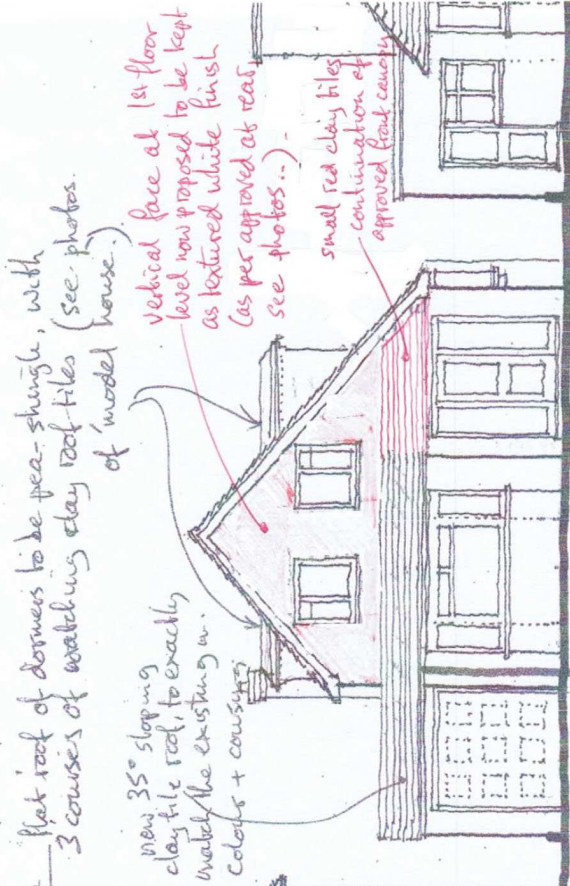 flat roof of dormers to be pea-shingle, with
3 courses of matching clay roof-tiles (see photos.
of 'model house'.)
new 35° sloping
clay tile roof, to exactly
match the existing in
colour + coursing
vertical face at 1st floor
level now proposed to be kept
as textured white finish
(as per approved at rear,
see photos..) -
small red clay tiles
continuation of
approved front canopy